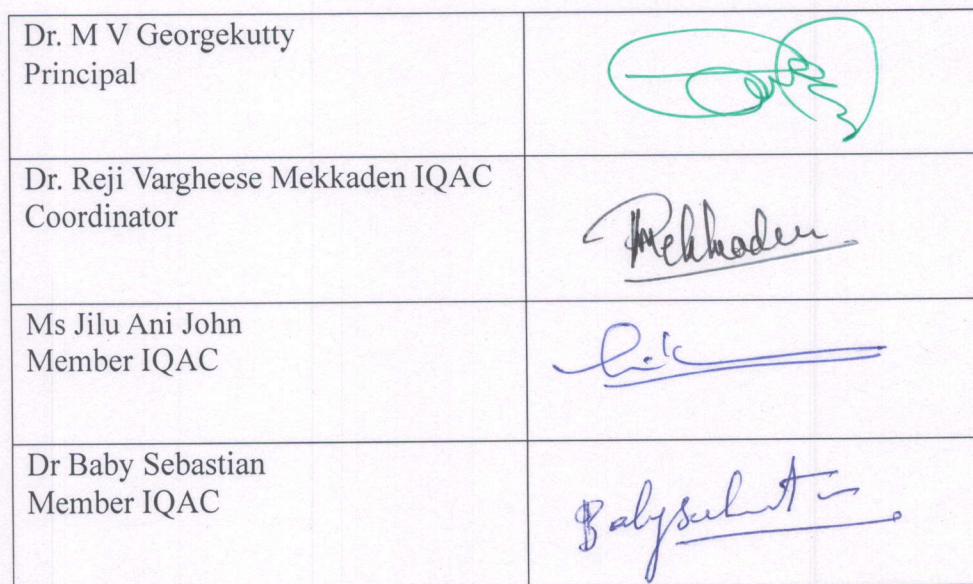 Dr. M V Georgekutty
Principal
Dr. Reji Vargheese Mekkaden IQAC
Coordinator
Mekkaden
Ms Jilu Ani John
Member IQAC
Dr Baby Sebastian
Member IQAC